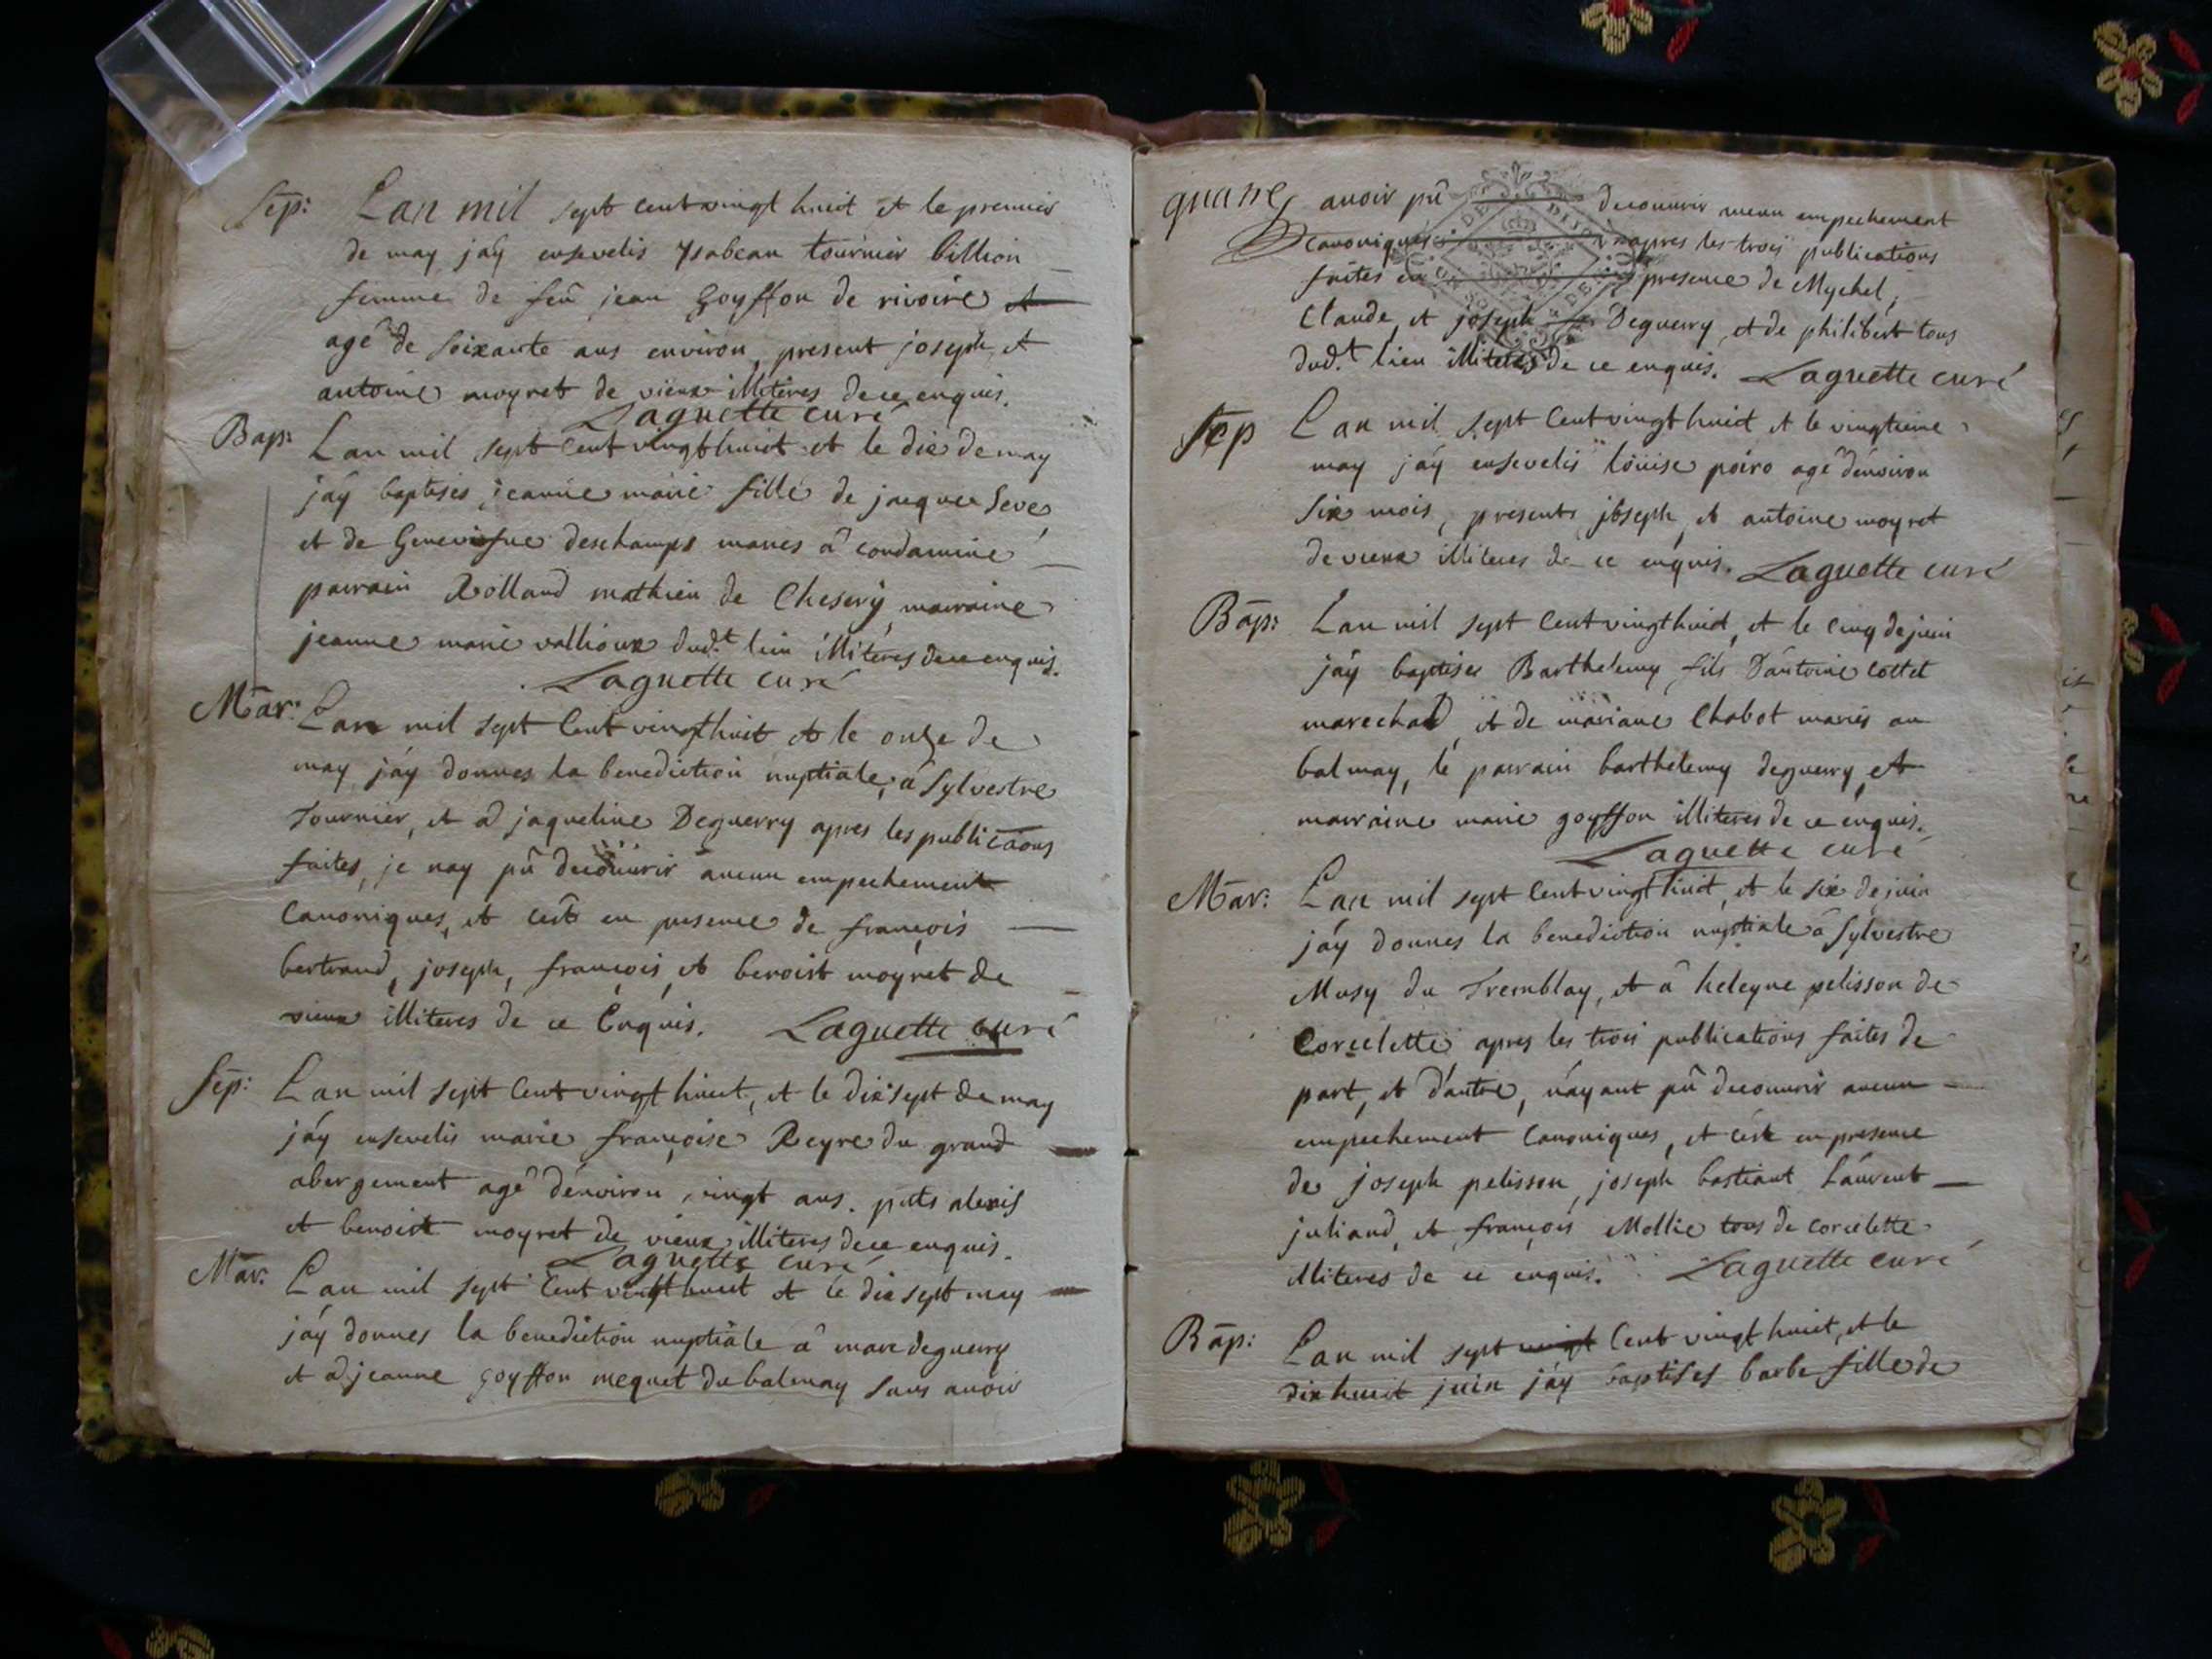 Sep: Lan mil sept cent vingt huict et le premier
de may jay ensevelis ysabeau tournier billion
femme de feu jean Goyffon de rivoire et
agé de soixante ans environ, present joseph, et
antoine moyret de vieux illiteres de ce enquis.
Laguette curé
Bap: Lan mil sept cent vingt huict et le dix de may
jay baptises jeanne marie fille de jacques Seve,
et de Geneviefve deschamps maries a condamine
parrain Rolland mathieu de Chesery, marraine
jeanne marie vallioux dud.t lieu illiteres de ce enquis.
Laguette curé
Mar: Lan mil sept cent vingt huit et le onze de
may jay donnes la benediction nuptiale, a Sylvestre
Tournier, et a jaqueline Deguerry apres les publicaons
faites, je nay pû decouvrir aucun empechement
canoniques, et cest en presence de françois
bertrand, joseph, françois, et benoist moyret de
vieux illiteres de ce Enquis. Laguette curé
Sep: Lan mil sept cent vingt huict, et le dix sept de may
jay ensevelis marie françoise Reyre du grand
abergement agé denviron vingt ans. pnts alexis
et benoist moyret de vieux illiteres de ce enquis.
Laguette curé
Mar: Lan mil sept cent vingt huict et le dix sept may
jay donnes la benediction nuptiale a marc deguerry
et a jeanne goyffon mequet du balmay sans avoir
avoir pû decouvrir aucun empechement
canoniques apres les trois publications
faites en presence de Mychel,
Claude, et joseph Deguerry, et de philibert tous
dud.t lieu illiteres de ce enquis. Laguette curé
Sep Lan mil sept cent vingt huict et le vingtieme
may jay ensevelis loüise poiro agé denviron
six mois, presents joseph, et antoine moyret
de vieux illiteres de ce enquis. Laguette curé
Bap: Lan mil sept cent vingt huict, et le cinq de juin
jay baptises Barthelemy fils Dantoine cottet
marechal, et de mariane Chabot maries au
balmay, le parrain barthelemy deguerry, et
marraine marie goyffon illiteres de ce enquis.
Laguette curé
Mar: Lan mil sept cent vingt huict, et le six de juin
jay donnes la benediction nuptiale a Sylvestre
Musy du Tremblay, et a heleyne pelisson de
Corcelette apres les trois publications faites de
part, et dautre, nayant pû decouvrir aucun
empechement canoniques, et cest en presence
de joseph pelisson, joseph bastiant Laurent
juliand, et françois Mollie tous de corcelette
illiteres de ce enquis. Laguette curé
Bap: Lan mil sept vingt cent vingt huict, et le
dix huict juin jay baptises barbe fille de